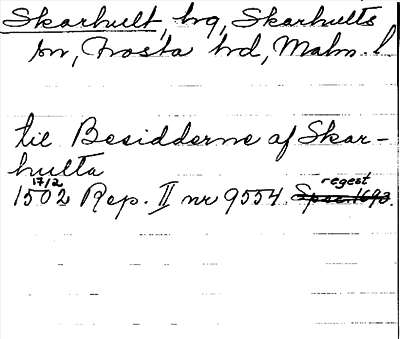 Skarhult, hg, Skarhults
sn, Frosta hd, Malm. l
til Besidderne af Skar-
hulta
17/2 regest
1502 Rep. II nr 9554. Spec. 1693.